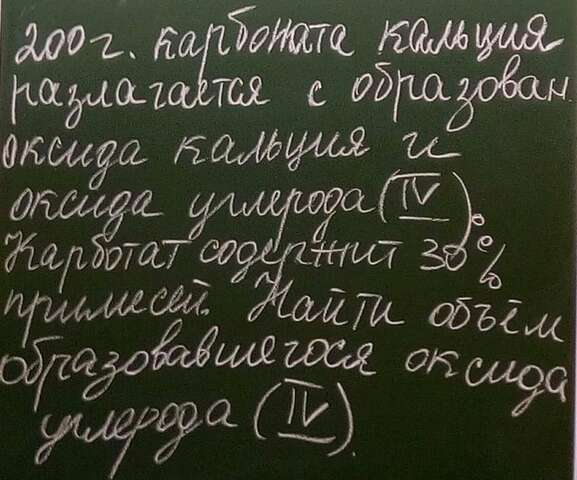 200 г. карбоната кальция
разлагается с образован
оксида кальция и
оксида углерода (IV).
Карботат содержит 30%
примесей. Найти объём
образовавшегося оксида
углерода (IV).